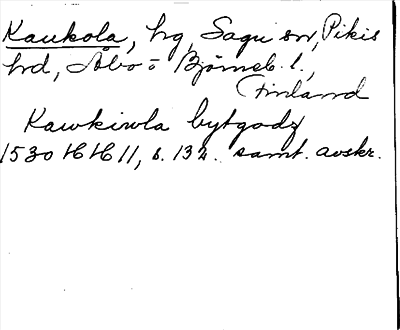 Kaukola, hg, Sagu sn, Pikis
hd, Åbo o Björneb. l.,
Finland
Kawkiwla bytgodz
1530 16/6 11, s. 132. samt. avskr.